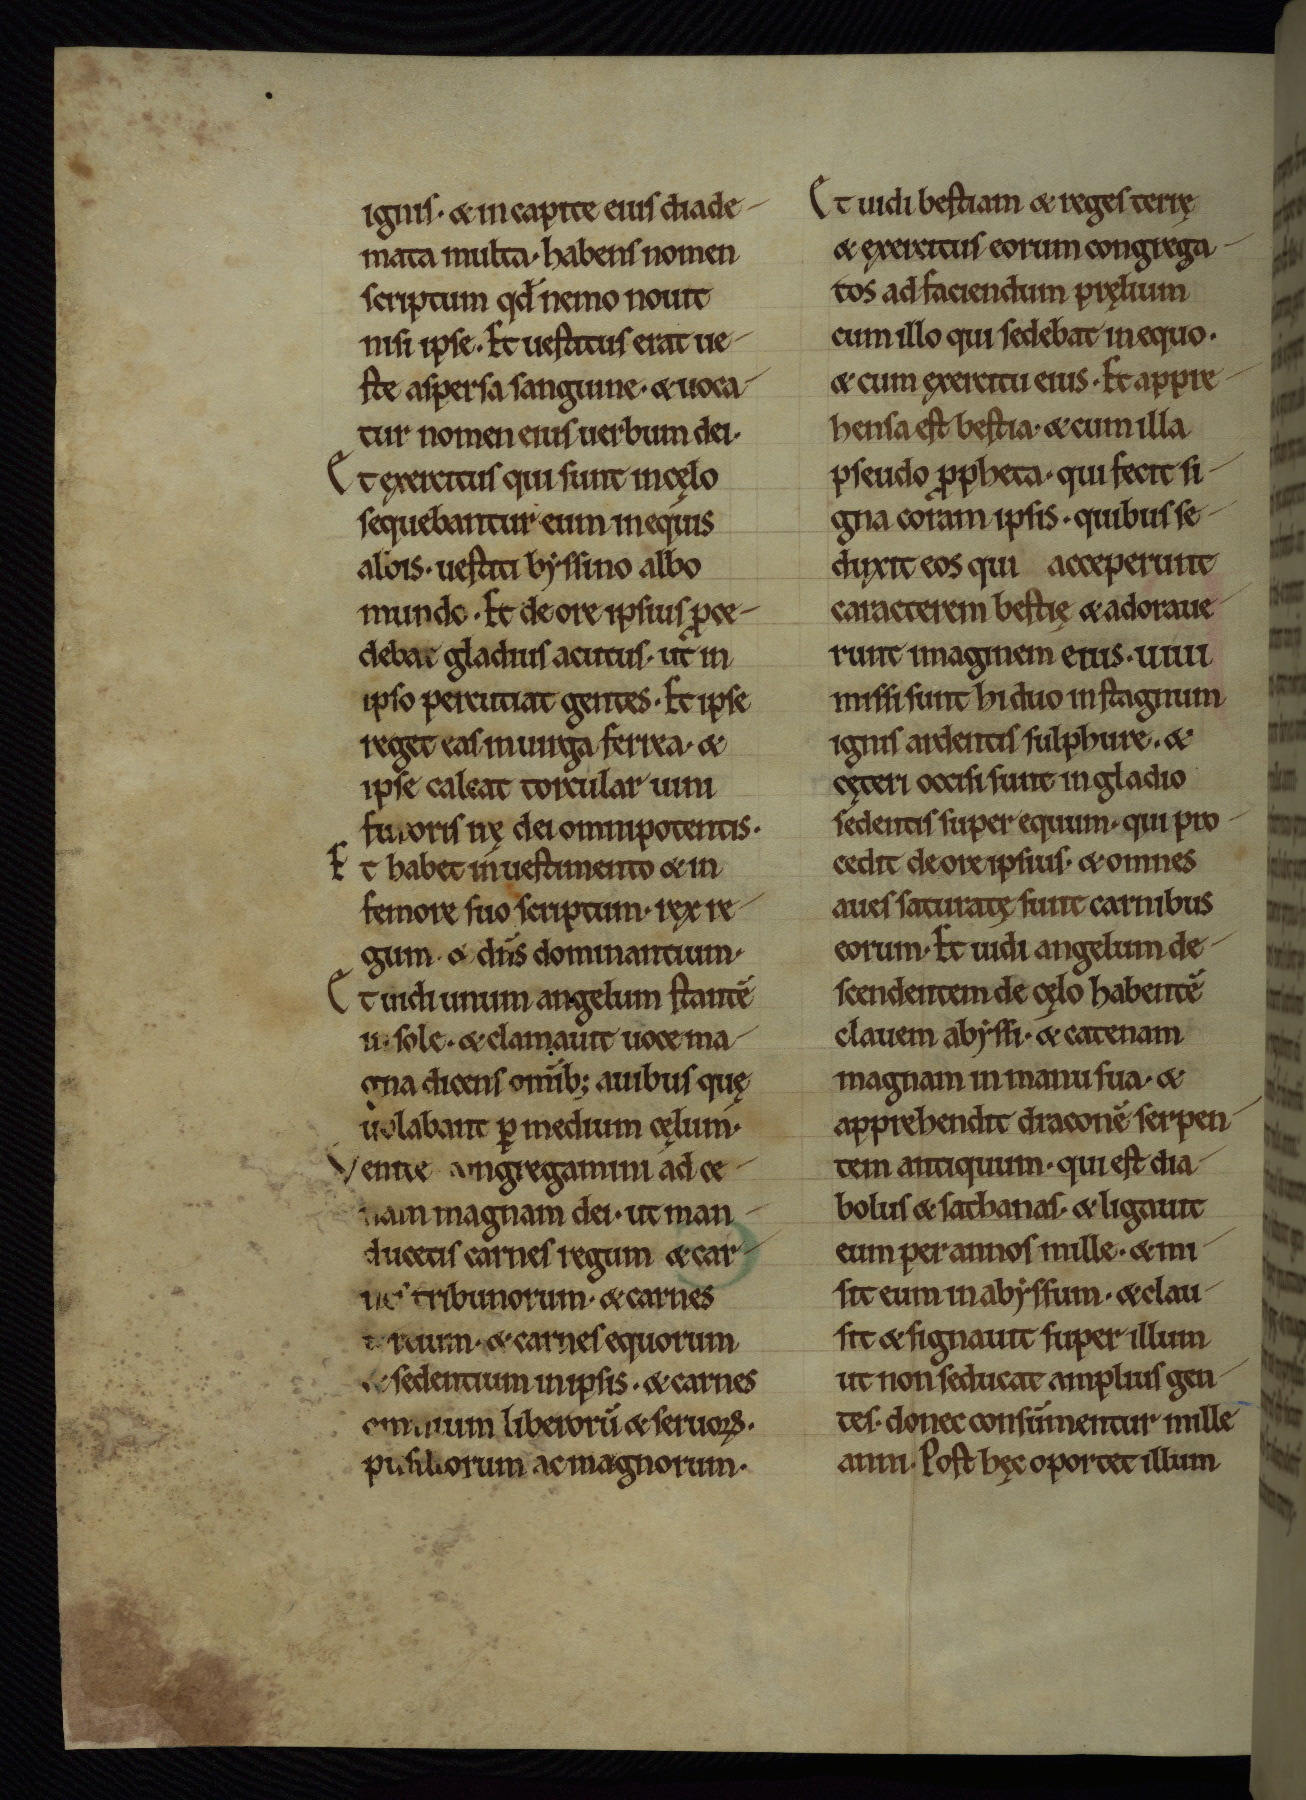 ignis· & in capite eius diade-
mata multa· habens nomen
scriptum qd̄ nemo nouit
nisi ipse· Et uestitus erat ue-
ste aspersa sanguine· & uoca-
tur nomen eius uerbum dei·
Et exercitus qui sunt in cęlo
sequebantur eum in equis
albis· uestiti byssino albo
mundo· Et de ore ipsius ꝓce-
debat gladius acutus· ut in
ipso percutiat gentes· Et ipse
reget eas in uirga ferrea· &
ipse calcat torcular uini
furoris irę dei omnipotentis·
Et habet in uestimento & in
femore suo scriptum· rex re-
gum· & dn̄s dominantium·
Et uidi unum angelum stantē
in sole· & clamauit uoce ma-
gna dicens omīb; auibus quę
uolabant ꝑ medium cęlum·
Venite congregamini ad ce-
nam magnam dei· ut man-
ducetis carnes regum & car-
nes tribunorum· & carnes
fortium· & carnes equorum
& sedentium in ipsis· & carnes
omnium liberorū & seruoꝝ·
pusillorum ac magnorum·
Et uidi bestiam & reges terrę
& exercitus eorum congrega-
tos ad faciendum pręlium
cum illo qui sedebat in equo·
& cum exercitu eius· Et appre-
hensa est bestia· & cum illa
pseudo ꝓpheta· qui fecit si-
gna coram ipsis· quibus se-
duxit eos qui acceperunt
caracterem bestię & adoraue-
runt imaginem eius· uiui
missi sunt hi duo in stagnum
ignis ardentis sulphure· &
cęteri occisi sunt in gladio
sedentis super equum· qui pro-
cedit de ore ipsius· & omnes
aues saturatę sunt carnibus
eorum· Et uidi angelum de-
scendentem de cęlo habentē
clauem abyssi· & catenam
magnam in manu sua· &
apprehendit draconē serpen-
tem antiquum· qui est dia-
bolus & sathanas· & ligauit
eum per annos mille· & mi-
sit eum in abyssum· & clau-
sit & signauit super illum
ut non seducat amplius gen-
tes· donec consūmentur mille
anni· Post hęc oportet illum